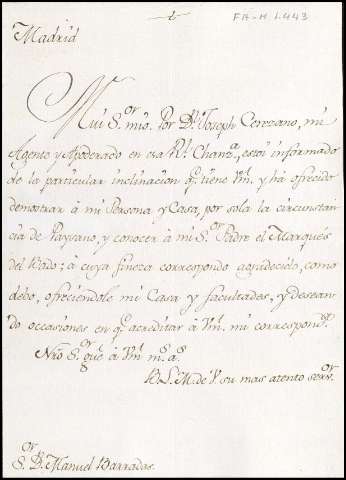 FA-M 1.443
Madrid
Mui S.or mio. Por D.n Joseph Cerezano, mi
Agente y Apoderado en esa R.l Chanz.a, estoi informado
de la particular inclinacion q.e tiene Vm. y há ofrecido
demostrar à mi Persona y Casa, por sola la circunstan
cia de Paysano, y conocer à mi S.or Padre el Marqués
del Vado; à cuya fineza correspondo agradecido, como
debo, ofreciendole mi Casa y facultades, y desean
do occasiones en q.e acreditar à Vm. mi correspond.a
Nrō S.or gūe à Vm m.s a.s
B L M. de V. su mas atento serv.or
S.or D.n Manuel Barradas.